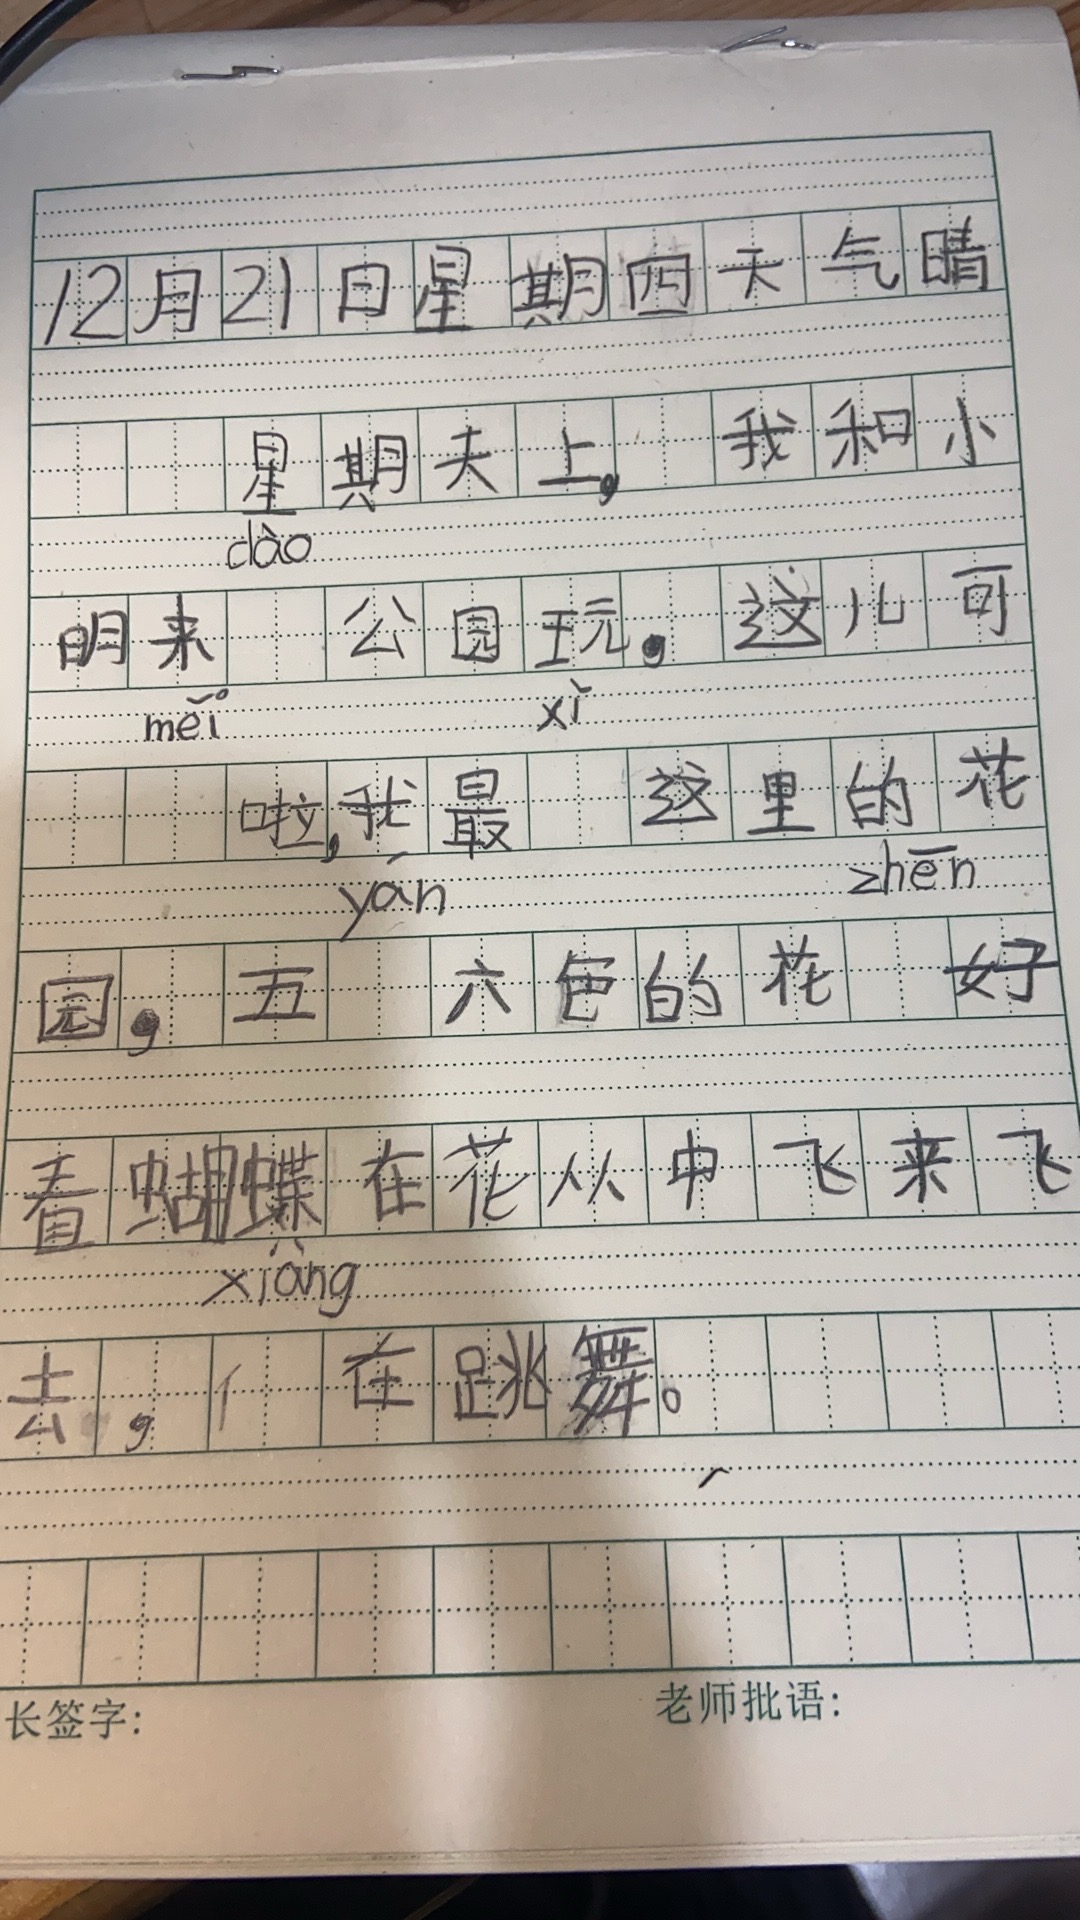 12月21日星期四天气晴
星期天上，我和小
dào
明来 公园玩，这儿可
měi xǐ
啦，我最 这里的花
yán zhēn
园，五 六色的花 好
看蝴蝶在花从中飞来飞
xiàng
去，亻 在跳舞。
长签字： 老师批语：